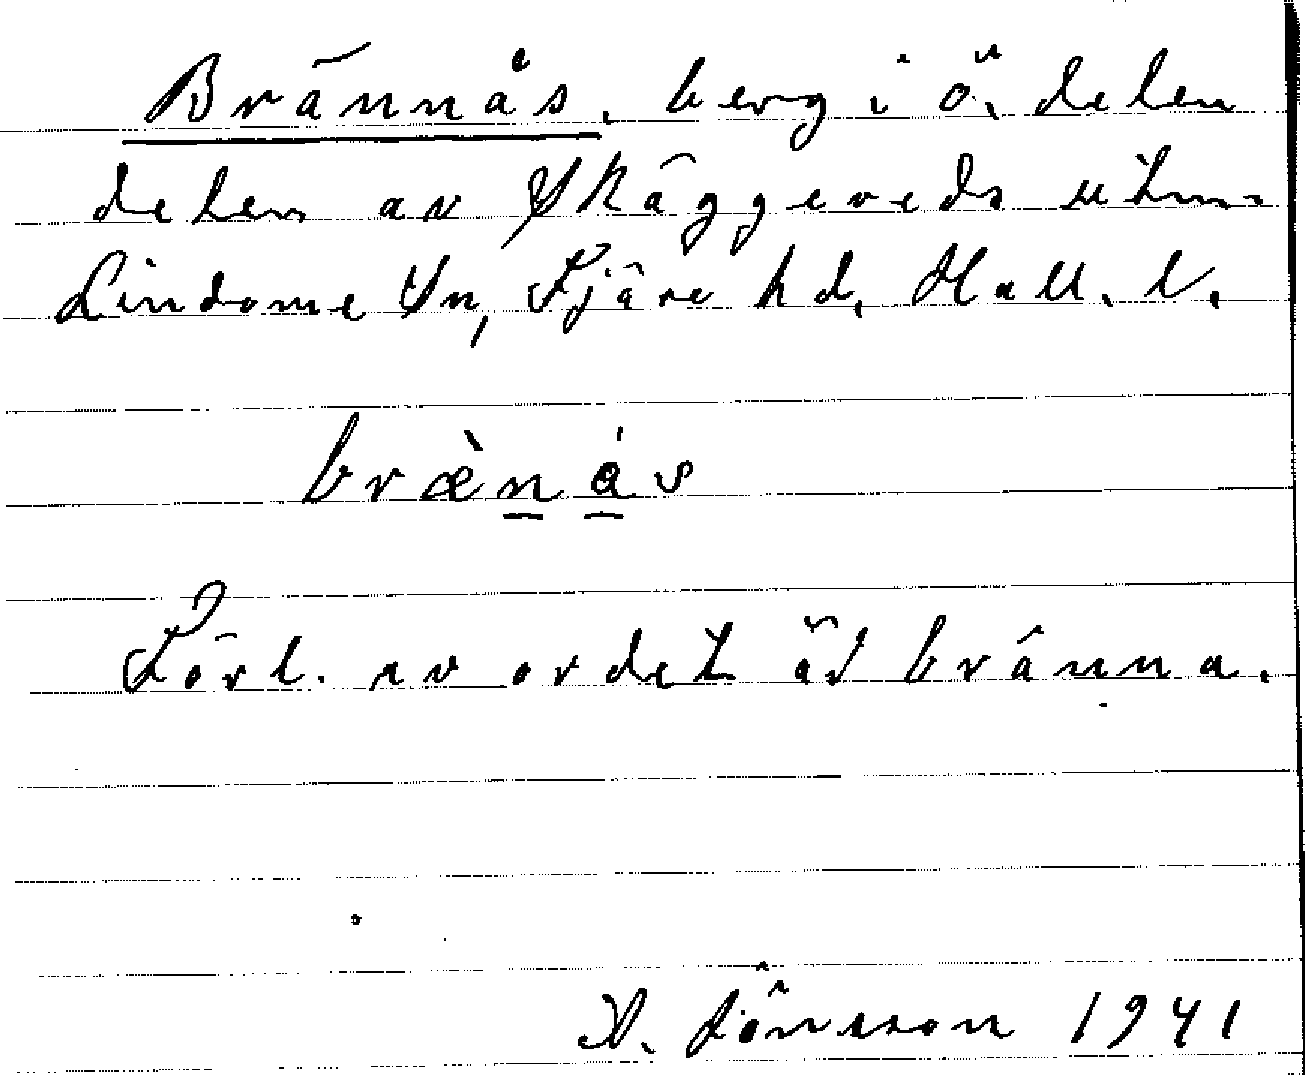 Brännås, berg i ö. delen
delen av Skäggereds utm.
Lindome Sn, Fjäre hd, Hall. l.
bræ̀nás
Förl. av ordet är bränna.
A. Jönsson 1941